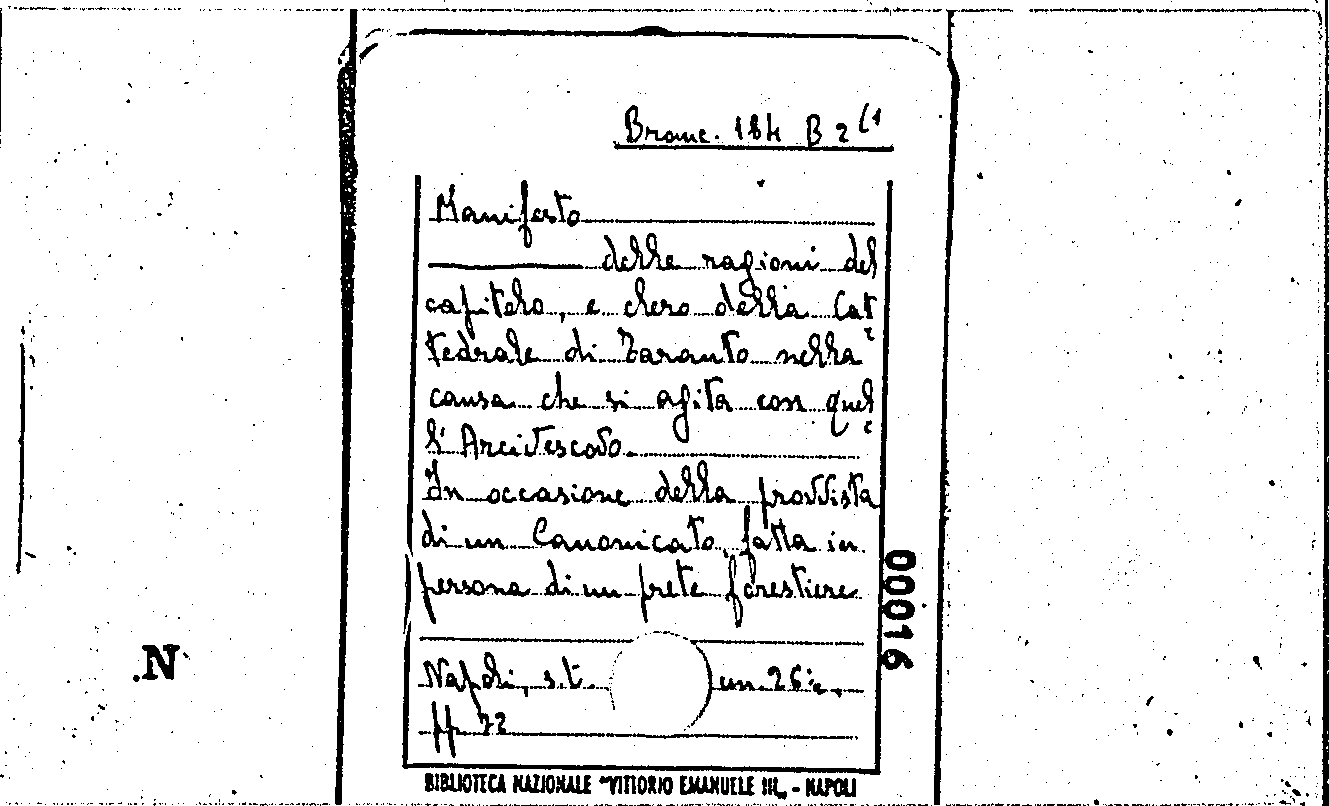 Branc. 184 B 2 (1
Manifesto
delle ragioni del
capitolo, e clero della Cat=
tedrale di Taranto nella
causa che si agita con quel=
l'Arcivescovo.
In occasione della provvista
di un Canonicato, fatta in
persona di un prete forestiere
Napoli, s.t. cm. 26
pp 72
BIBLIOTECA NAZIONALE "VITTORIO EMANUELE III„ - NAPOLI
00016
.N